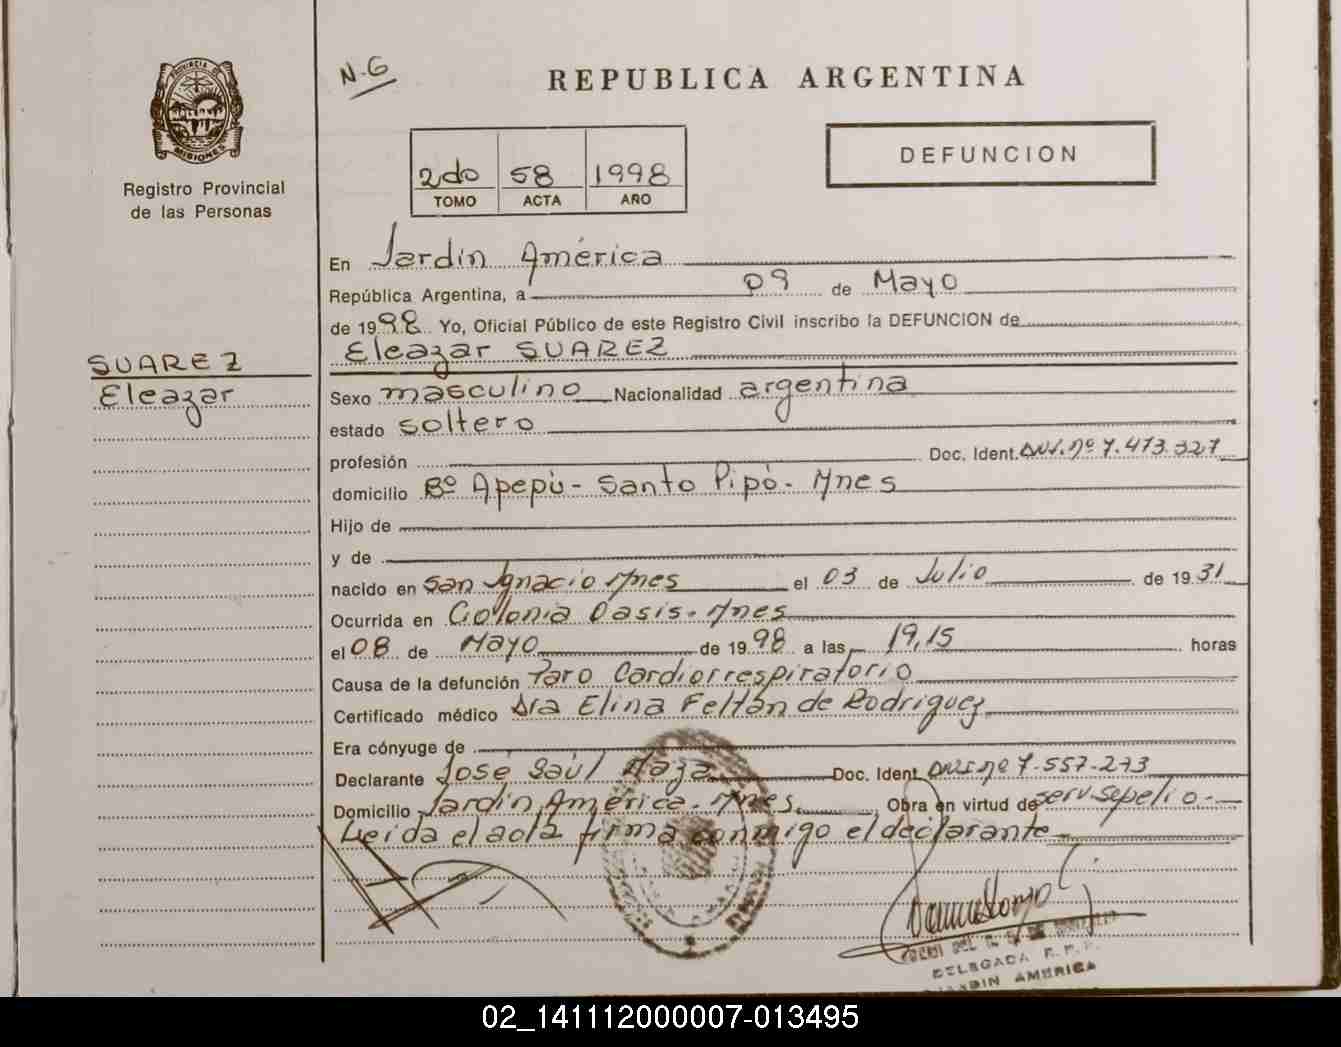 PROVINCIA D
MISIONES
Registro Provincial
de las Personas
SUAREZ
Eleazar
N-G
REPUBLICA ARGENTINA
2do 58 1998
TOMO ACTA AÑO
DEFUNCION
En Jardín América
República Argentina, a 09 de Mayo
de 1998 Yo, Oficial Público de este Registro Civil inscribo la DEFUNCION de
Eleazar SUAREZ
Sexo masculino Nacionalidad argentina
estado soltero
profesión Doc. Ident. DNI. nº 7.473.327
domicilio Bº Apepú - Santo Pipó - Mnes
Hijo de
y de
nacido en San Ignacio Mnes el 03 de Julio de 1931
Ocurrida en Colonia Oasis - Mnes
el 08 de Mayo de 1998 a las 19,15 horas
Causa de la defunción Paro Cardiorrespiratorio
Certificado médico Dra Elina Feltan de Rodríguez
Era cónyuge de
Declarante José Saúl Maza Doc. Ident. DNI nº 7.557.273
Domicilio Jardín América - Mnes. Obra en virtud de serv. sepelio.-
Leída el acta firma conmigo el declarante
DELEGADA R.P.P.
JARDIN AMERICA
02_141112000007-013495